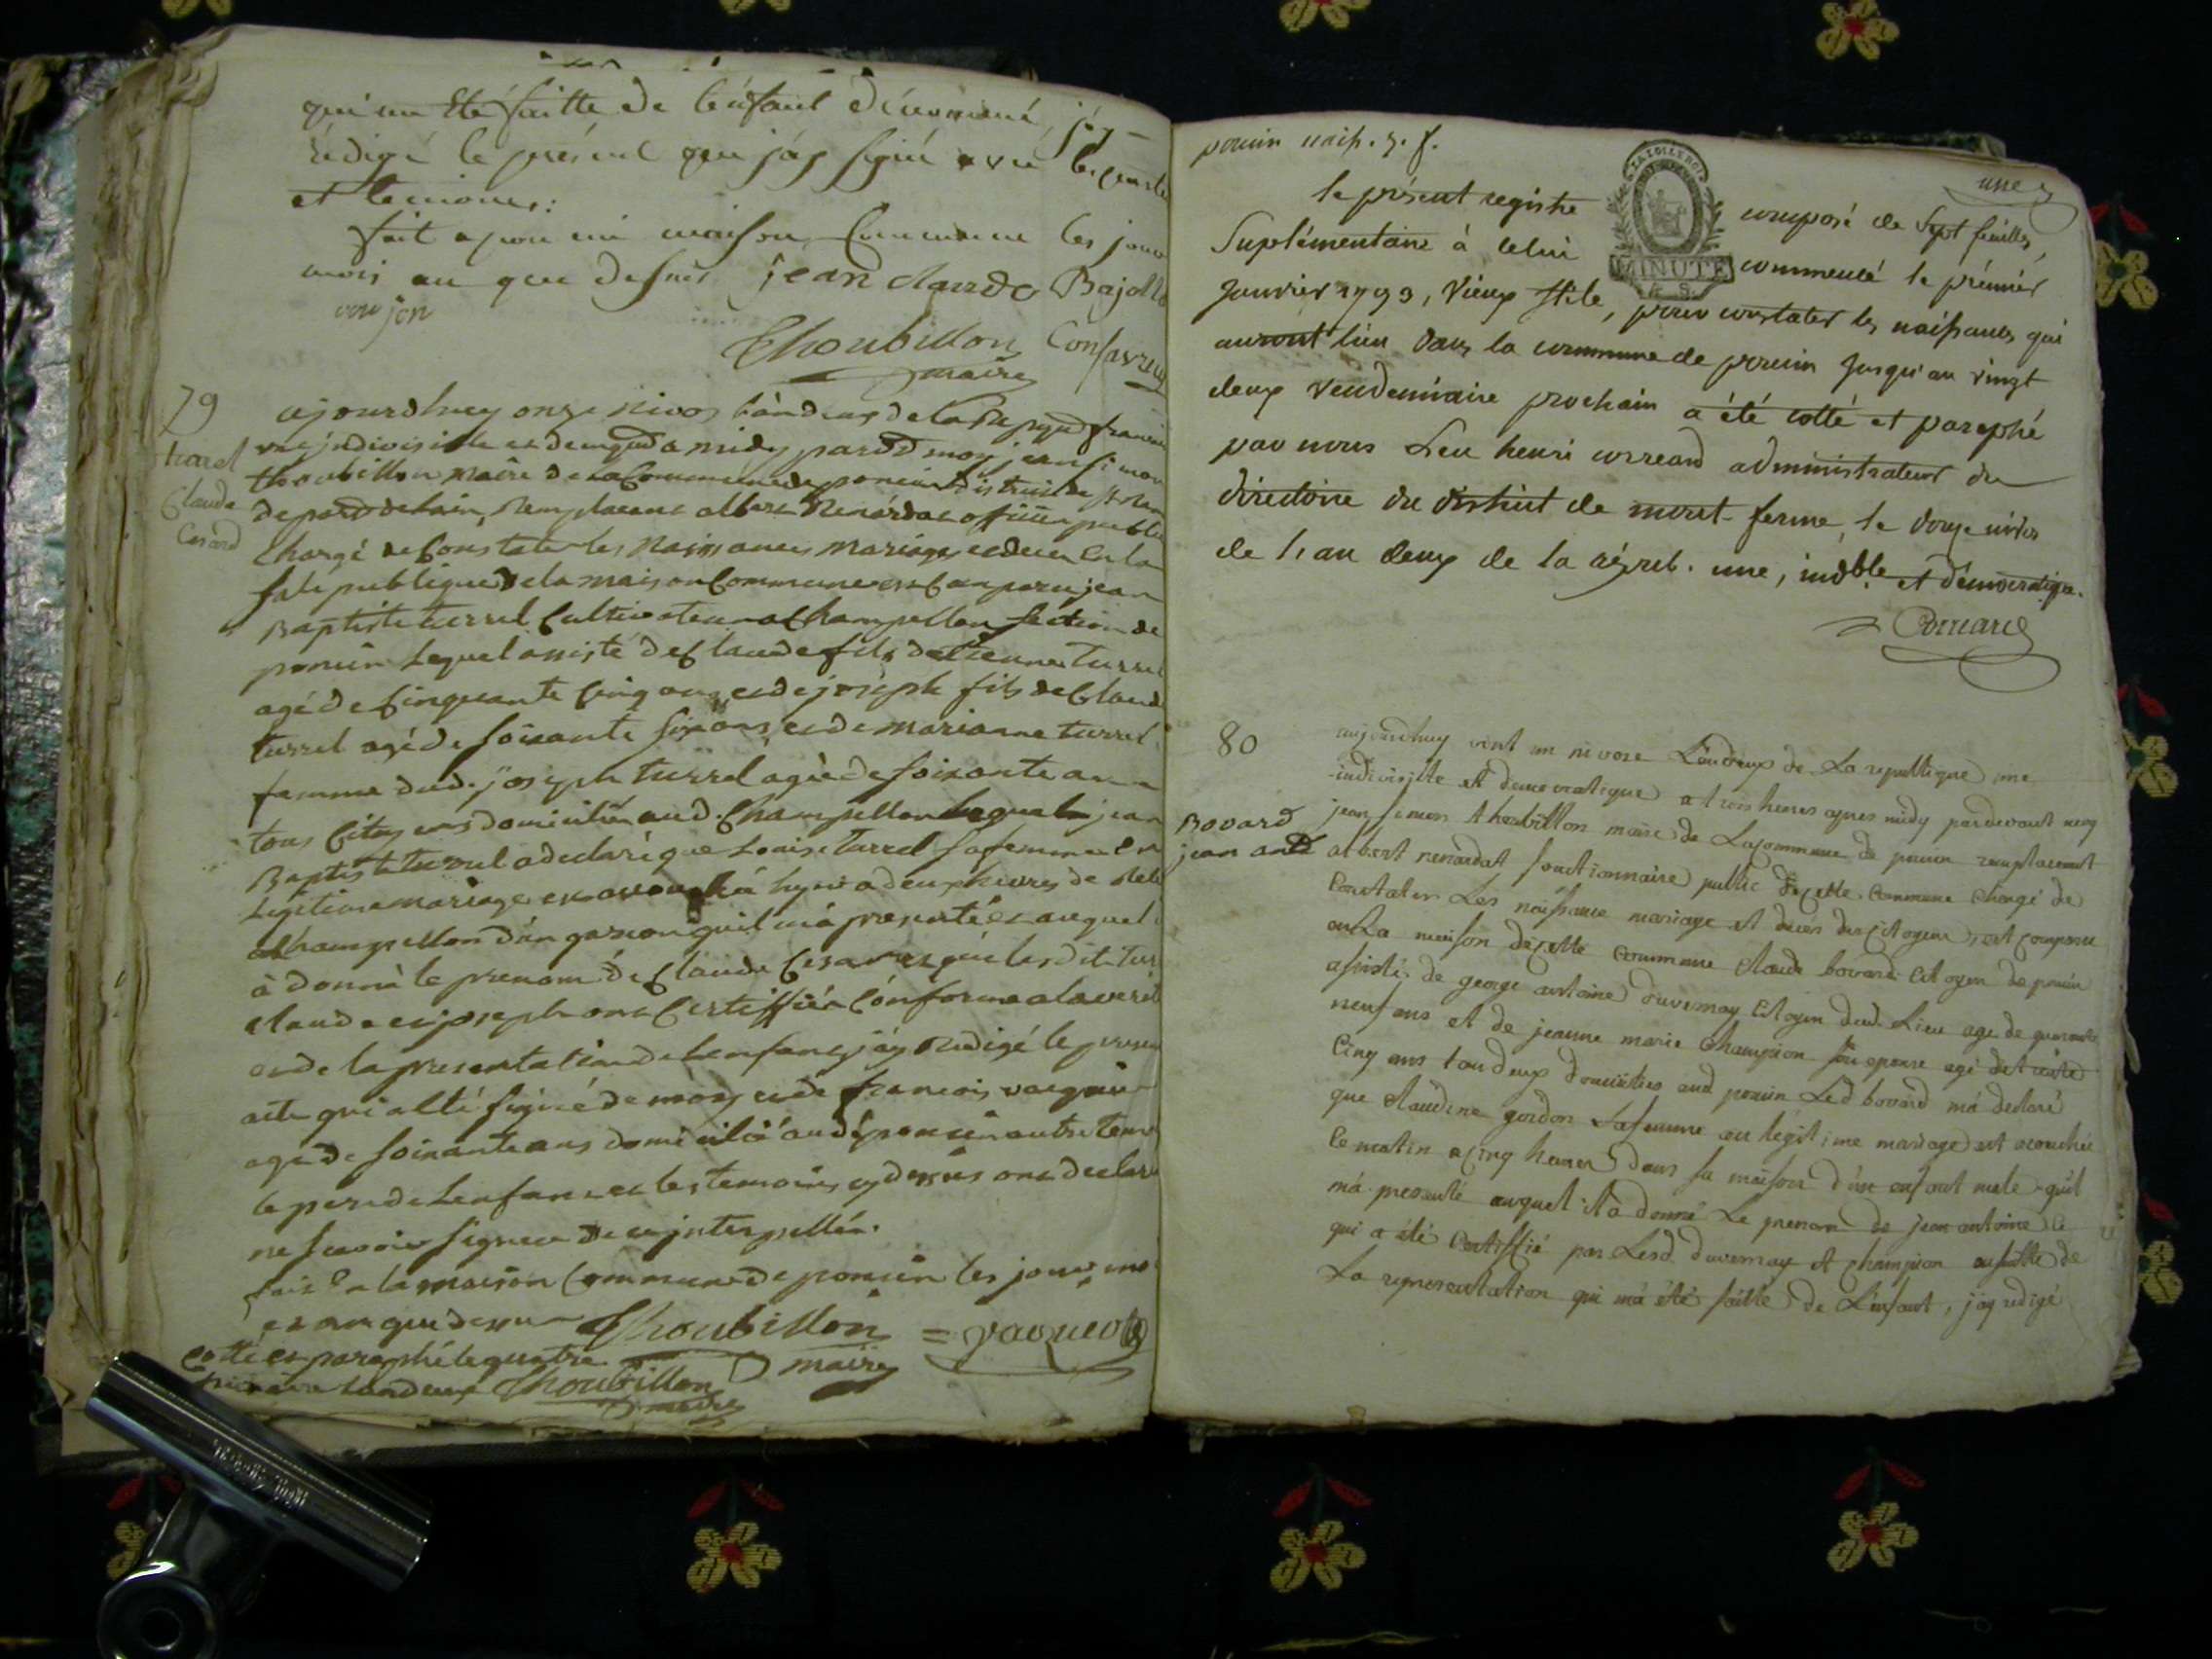 qui été faitte de l'enfant
rédigé le présent que j'ay signé avec les
et temoins:
fait a poncin maison Commune les jour
mois an que dessus jean claude Bajollo
voujon
Thoubillon
maire
79
turrel
Claude
Cesard
ajourdhuy onze nivos l'an deux de la
une jndivisible et a midy moy jean simon
thoubillon maire de la Commune de poncin district de
remplacent albert Renardat officier public
Chargé de Constater les Naissances mariages et deces En la
sale publique de la maison Commune est Comparu jean
Baptiste turrel Cultivateur a Champellon section de
poncin Lequel assisté de Claude fils d'etienne turrel
agé de Cinquante Cinq ans et de joseph fils de Claude
turrel agé de soixante six ans et de marianne turrel
famme dud. joseph turrel agèe de soixante ans
tous Citoyens domiciliés aud. Champellon lequel jean
Baptiste turrel a declaré que Louise turrel sa femme En
Legitime mariage est hyer a deux heures de
a Champellon d'un garson qu'il m'a presenté et auquel
à donné le prenom de Claude Cesard que lesdit
claude et joseph ont Certiffiér Conforme a la
et de la presentation de L'enfant j'ay Redigé le present
acte qui a été signé de moy et de francois
agé de soixante ans domicilié aud. poncin autre
le pere de L'enfant et les temoins cy dessus ont declaré
ne scavoir signer de ce jnterpellér.
fait En la maison Commune de poncin les jour, mo
et an que dessus Thoubillon = vaquero
maire
Cotté et paraphé le quatre
l'an deux Thoubillon
maire
poncin naiss. 7. f.
une
LA LOI LE ROI
MINUTE
le présent registre composé de sept feuilles,
Suplémentaire à celui commencé le prémier
Janvier 1793, vieux stile, pour constater les naissances qui
auront lieu dans la commune de poncin jusqu'au vingt
deux vendemiaire prochain a été cotté et paraphé
par nous Leu henri correard administrateur du
directoire du district de mont-ferme, le douze nivos
de l'an deux de la répub. une, indble. et démocratique.
Correard
80
Bovard
jean ant
aujourdhuy vint un nivose L'andeux de La republique une
indivisible et democratique a trois heures apres midy pardevant moy
jean simon thoubillon maire de La commune de poncin remplacent
albert renardat fonctionnaire public de cette Commune Chargé de
Constater Les naissance mariage et décès des Citoyens, est comparu
en La maison de cette Commune Claude bovard Citoyen de poncin
assisté de george antoine duvernay Citoyen dud. Lieu age de quarante
neuf ans et de jeanne marie Champion son epouse agé de trente
Cinq ans tou deux domiciliés aud poncin Led bovard m'a declaré
que Claudine gordon Sa femme en légitime mariage est acouchée
Ce matin a cinq heures dans sa maison d'un enfant male qu'il
m'a presenté auquel il a donné Le prenom de jean antoine ce
qui a été Certiffié par Lesd. duvernay et Champion ensuitte de
La representation qui m'a été faitte de L'enfant, j'ay redigé